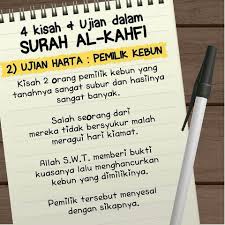 4 kisah & Ujian dalam
SURAH AL-KAHFI
2) UJIAN HARTA : PEMILIK KEBUN
Kisah 2 orang pemilik kebun yang
tanahnya sangat subur dan hasilnya
sangat banyak.
Salah seorang dari
mereka tidak bersyukur malah
meragui hari kiamat.
Allah S.W.T. memberi bukti
kuasanya lalu menghancurkan
kebun yang dimilikinya.
Pemilik tersebut menyesal
dengan sikapnya.